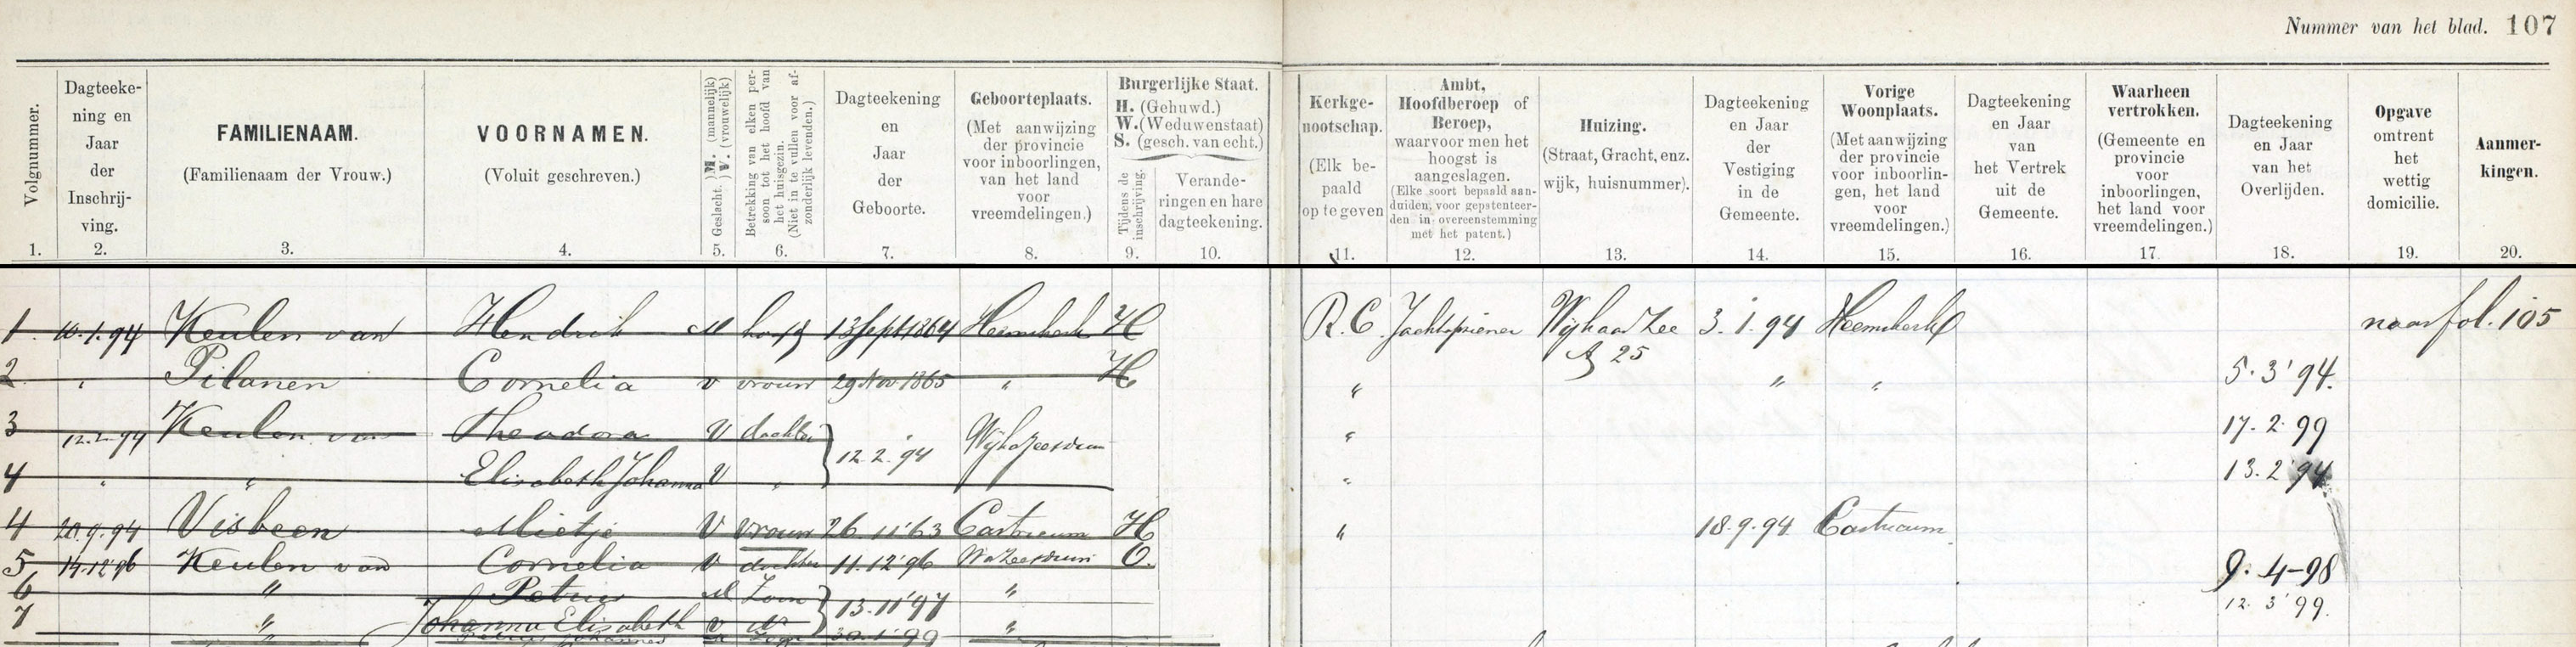 Nummer van het blad. 107
Volgnummer.
1.
Dagteeke-
ning en
Jaar
der
Inschrij-
ving.
2.
FAMILIENAAM.
(Familienaam der Vrouw.)
3.
VOORNAMEN.
(Voluit geschreven.)
4.
Geslacht. M. (mannelijk)
V. (vrouwelijk)
5.
Betrekking van elken per-
soon tot het hoofd van
het huisgezin.
(Niet in te vullen voor af-
zonderlijk levenden.)
6.
Dagteekening
en
Jaar
der
Geboorte.
7.
Geboorteplaats.
(Met aanwijzing
der provincie
voor inboorlingen,
van het land
voor
vreemdelingen.)
8.
Burgerlijke Staat.
H. (Gehuwd.)
W. (Weduwenstaat)
S. (gesch. van echt.)
Tijdens de
inschrijving.
9.
Verande-
ringen en hare
dagteekening.
10.
Kerkge-
nootschap.
(Elk be-
paald
op te geven
11.
Ambt,
Hoofdberoep of
Beroep,
waarvoor men het
hoogst is
aangeslagen.
(Elke soort bepaald aan-
duiden, voor gepatenteer-
den in overeenstemming
met het patent.)
12.
Huizing.
(Straat, Gracht, enz.
wijk, huisnummer).
13.
Dagteekening
en Jaar
der
Vestiging
in de
Gemeente.
14.
Vorige
Woonplaats.
(Met aanwijzing
der provincie
voor inboorlin-
gen, het land
voor
vreemdelingen.)
15.
Dagteekening
en Jaar
van
het Vertrek
uit de
Gemeente.
16.
Waarheen
vertrokken.
(Gemeente en
provincie
voor
inboorlingen,
het land voor
vreemdelingen.)
17.
Dagteekening
en Jaar
van het
Overlijden.
18.
Opgave
omtrent
het
wettig
domicilie.
19.
Aanmer-
kingen.
20.
1. 10.1.94 Keulen van Hendrik M hoofd 13 Sept 1864 Heemskerk H R.C. Wijk aan Zee 3.1.94 Heemskerk naar fol. 105
A 25
2 " Pilanen Cornelia V vrouw 29 Nov 1865 " H " " " 5.3'94.
3 12.2.94 Keulen van Theodora V dochter 12.2.'94 Wijk a Zee en duin " 17.2.99
4 " " Elisabeth Johanna V " " 13.2'94
4 20.9.94 Visbeen Mietje V vrouw 26.11'63 Castricum H " 18.9.94 Castricum
5 14.12'96 Keulen van Cornelia V dochter 11.12'96 W a Zee en duin O. 9.4-98
6 " Petrus M Zoon 13.11'97 " 12.3'99.
7 " Johanna Elisabeth V dr "
" Johannes Zoon 30.1'99